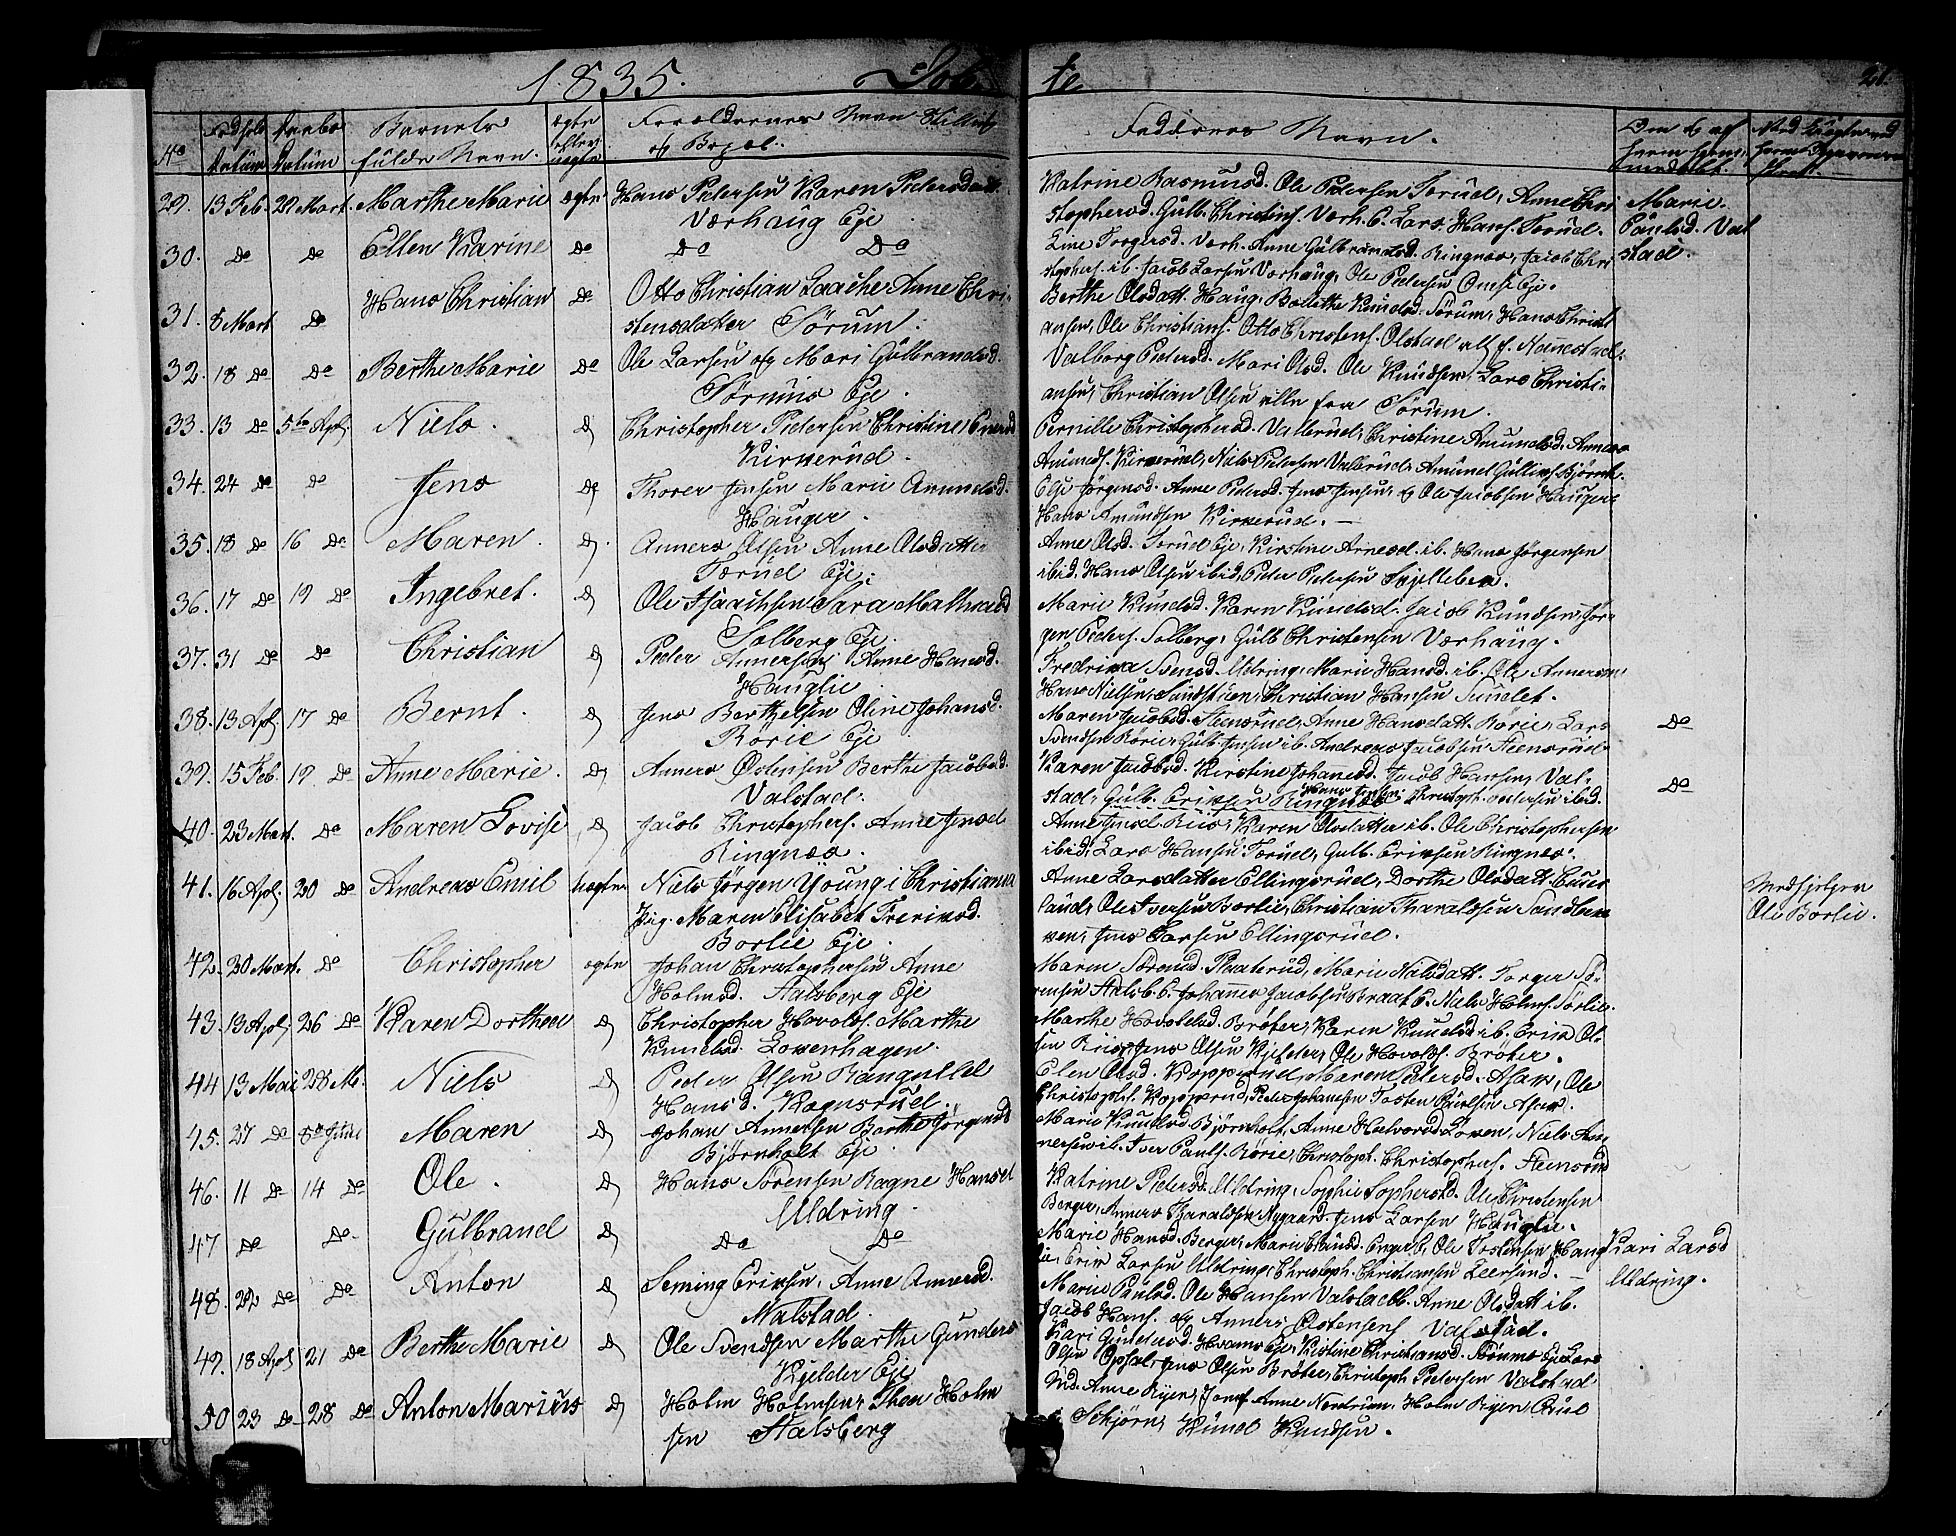 1835. Døb te 21.
No
Datum Datum
Barnets
fulde Navn.
ægte
eller
uægte
Forældrenes Navn Stilling
og Bopæl.
Faddernes Navn.
29. 13 Feb. 29 Mart. Marthe Marie ægte Hans Pedersen Karen Pedersdatt.
Værhaug Eje
Katrine Rasmusd. Ole Pedersen Torud, Anne Chri
stophersd. Gulb. Christins. Værh. E. Lars Hans. Torud.
Marie
Paulsd. Val
stad.
30. Do Do Ellen Karine Do Do Do
Line Torgersd. Værh. Anne Gulbrandsd. Ringnæs, Jacob Chri
stophers. ib. Jacob Larsen Værhaug, Ole Pedersen Eje.
31. 8 Mart Do Hans Christian Do Otto Christian Laache Anne Chri-
stensdatter Sørum.
Berthe Olsdatt. Haug, Bollette Knudsd. Sørum, Hans Christi
ansen, Ole Christians. Otto Christens. Olstad alle f. Nannestad.
32. 18 Do Do Berthe Marie Do Ole Larsen og Mari Gulbrandsd.
Sørums Eje.
Valborg Pedersd. Mari Olsd. Ole Knudsen, Lars Christi-
ansen, Christian Olsen alle fra Sørum.
33. 13 Do 5te Apl. Niels. D Christopher Pedersen Christine
Kirkerud.
Pernille Christophersd. Valbrud, Christine Amundsd. Anners
Amunds. Kirkerud, Niels Pedersen Valbrud, Amund Gulbs.
34. 24 Do Do Jens Do Thorer Jensen Marie Amundsd.
Hauger.
Else Jørgensd. Anne Pedersd. Jens Jensen, og Ole Jacobsen Hauger
Hans Amundsen Kirkerud. —
35. 18 Do 16 Do Maren. D. Anners Olsen Anne Olsdatter
Torud Eje.
Anne Olsd. Torud Eje, Kirstine Arnesd. ib. Hans Jørgensen
ibid. Hans Olsen ibid, Peder Pedersen
36. 17 Do 19 Do Ingebret. D Ole Isaachsen Sara
Solberg Eje.
Marie Knudsd. Karen Knudsd. Jacob Knudsen, Jør-
gen Peders. Solberg, Gulb Christensen Værhaug.
37. 31 Do Do Christian D Peder Annersen Anne Hansd.
Hauglie
Fredrikka Svensd. Uldring, Marie Hansd. ib. Ole Annersen
Hans Nielsen, Christian Hansen
38. 13 Apl 17 Do Bernt. D Jens Berthelsen Oline Johansd.
Rørie Eje
Maren Jacobsd. Steensrud, Anne Hansdatt. Rørie, Lars
Svendsen Rørie, Gulb. Jensen ib. Andreas Jacobsen Steensrud
Do
39. 15 Feb. 19 Do Anne Marie. D Anners Østensen Berthe Jacobsd.
Valstad.
Karen Jacobsd. Kirstine Johannesd. Jacob Hansen, Val-
stad, Gulb. Eriksen Ringnæs Hans Christoph. Pedersen ibid.
Do
40. 23 Mart. Do Maren Lovise D Jacob Christophers. Anne Jensd
Ringnæs.
Anne Jensd. Riis, Karen Olsdatter ib. Ole Christophersen
ibid, Lars Hansen Torud, Gulb. Eriksen Ringnæs.
41. 16 Apl 20 Do Andreas Emil uægte Niels Jørgen Young i Christiania
Pig. Maren Elisabet Freriksd.
Borlie Eje.
Anne Larsdatter Ellingsrud, Dorthe Olsdatt.
land, Ole Iversen Borlie, Christian Tharaldsen Sandbek
ken, Jens Larsen Ellingsrud.
Medhjelper
Ole Borlie.
42. 30 Mart. Do Christopher ægte Johan Christophersen Anne
Holmsd. Stalsberg Eje
Maren Sørensd. Plaaterud, Marie Nielsdatt. Torger Sø-
rensen Stalsb. E. Johannes Jacobsen Braat E. Niels Holms. Sørlie.
43. 13 Apl 26 Do Karen Dorthea D Christopher Hovelds. Marthe
Knudsd. Lovenhagen.
Marthe Hoveldsd. Brøter, Karen Knudsd ib. Erik Ol-
sen Riis, Jens Olsen Kjelder, Ole Hovolds. Brøter.
44 13 Mai 28 M. Niels D Peder Olsen Rangnild
Hansd. Kognsrud.
Elen Olsd. Kopperud, Maren Pedersd. Asak, Ole
Christophs. Kopperud, Peder Johansen Tosten Paulsen Asak.
45. 27 Do 8de Juni Maren D Johan Annersen Berthe Jørgensd
Bjørnholt Eje
Marie Knudsd Bjørnholt, Anne Halvorsd. Loken, Niels An-
nersen ib. Iver Pauls. Rørie, Christoph. Christophers. Steensrud
46. 11 Do 14 Do Ole. D Hans Sørensen Ragne Hansd
Uldring.
Katrine Pedersd. Uldring, Sophie Sophersd. Ole Christensen
Berger, Anners Tharaldsen Nygaard. Jens Larsen Hauglie.
47 Do Do. Gulbrand D Do Do
Marie Hansd. Berger, Marie Ole Tostensen Haug
lie, Erik Larsen Uldring, Christoph. Christiansen Leersund. —
Kari Larsd
Uldring.
48. 22 Do Do Anton D Seming Eriksen, Anne Annersd.
Valstad.
Marie Paulsd. Ole Hansen Valstad. Anne Olsdatt ib.
Jacob Hans. og Anners Østensens Valstad.
49. 18 Apl 21 Do Berthe Marie D Ole Svendsen Marthe Gunders
Kjelder Eje
Kari Guldsd. Hvams Eje, Kistine Christiansd. Sørums Eje Lars
Olsen Opsal, Jens Olsen Brøter, Christoph Pedersen Valstad
50 23 Do 28 Do Anton Marius D Holm Holmsen, Thea Holm
sen Stalsberg
Md. Anne Ryen, Jomf Anne Holm Ryen, Paul
Schjørn, Knud Knudsen.